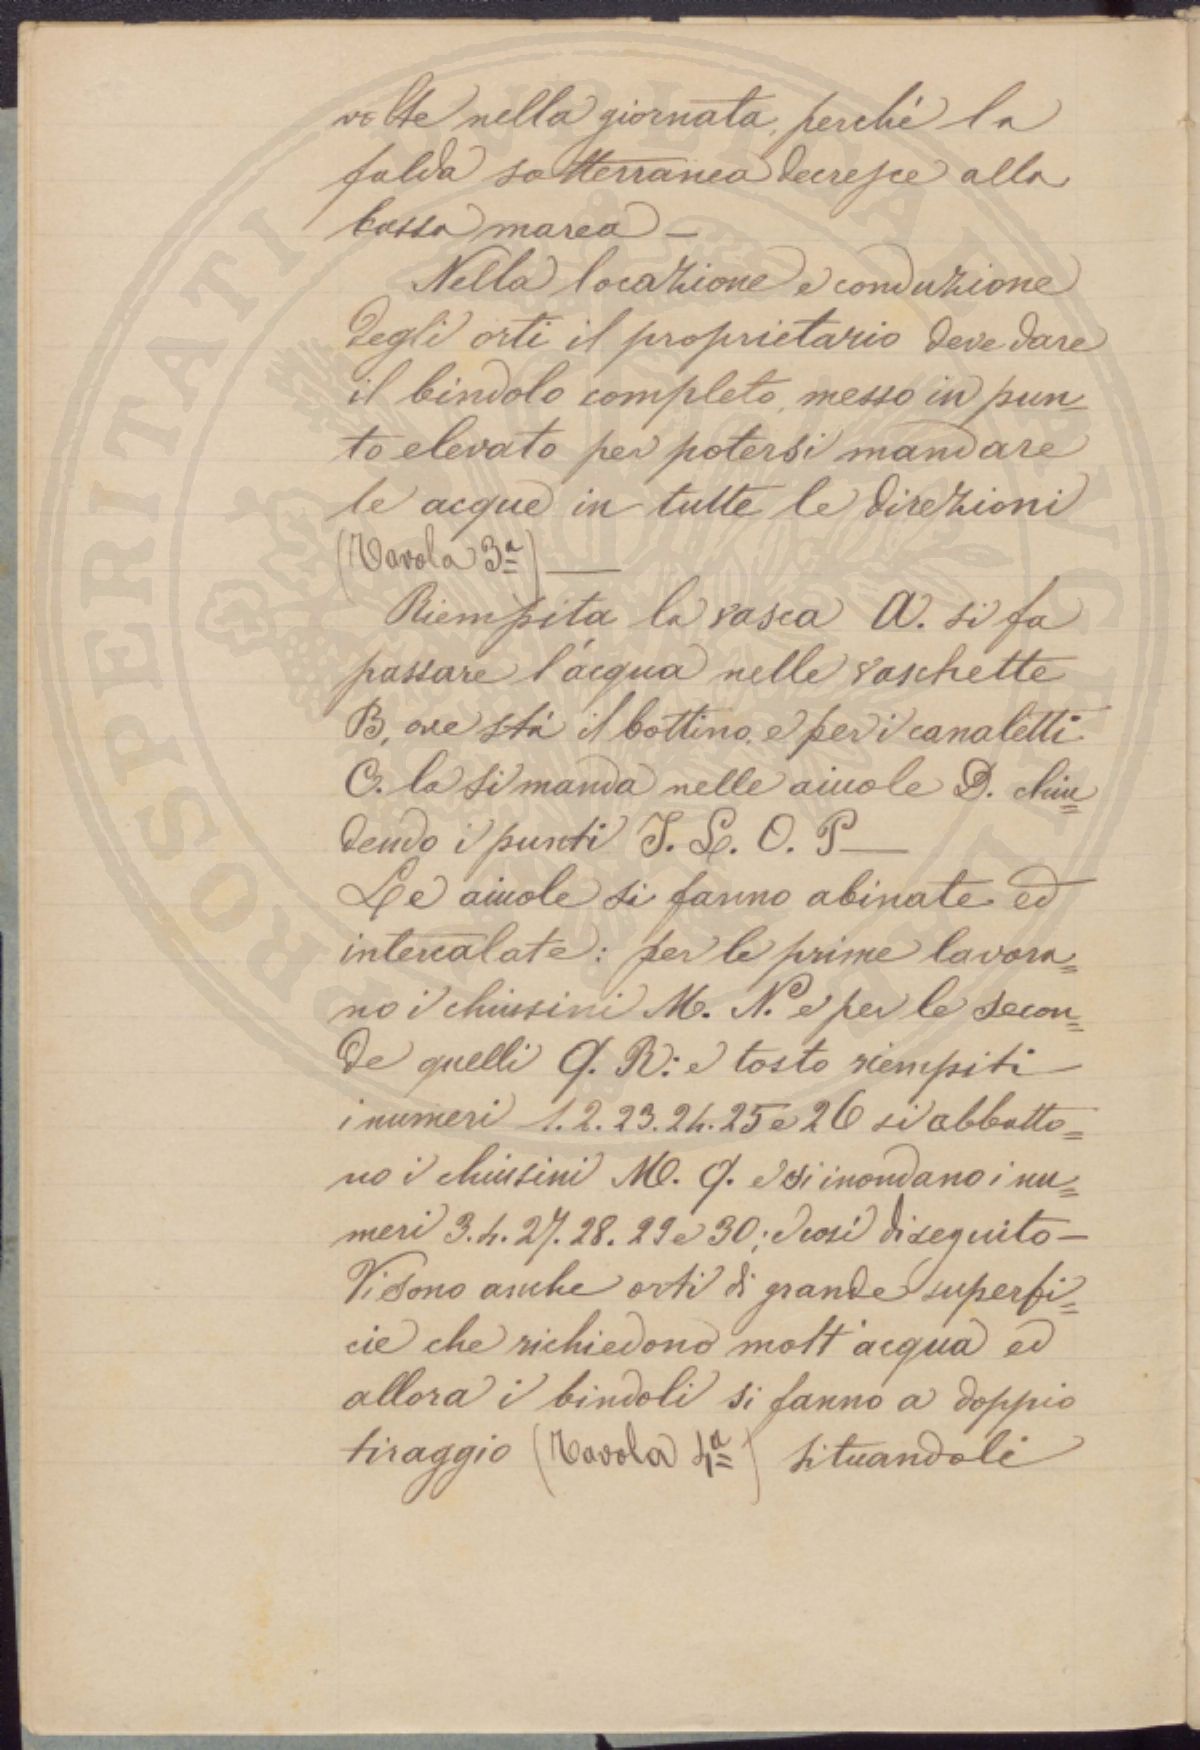 volte nella giornata, perchè la
falda sotterranea decresce alla
bassa marea —
Nella locazione e conduzione
degli orti il proprietario deve dare
il bindolo completo, messo in pun=
to elevato per potersi mandare
le acque in tutte le direzioni
(Tavola 3ª) —
Riempita la vasca A. si fa
passare l'acqua nelle vaschette
B, ove stà il bottino, e per i canaletti
C. la si manda nelle aiuole D. chiu=
dendo i punti I. L. O. P —
Le aiuole si fanno abinate ed
intercalate: per le prime lavora=
no i chiusini M. N. e per le secon=
de quelli Q. R: e tosto riempiti
i numeri 1. 2. 23. 24. 25 e 26 si abbatto=
no i chiusini M. Q. e si inondano i nu=
meri 3. 4. 27. 28. 29 e 30; e così di seguito —
Vi sono anche orti di grande superfi=
cie che richiedono molt'acqua ed
allora i bindoli si fanno a doppio
tiraggio (Tavola 4ª) situandoli
PROSPERITATI PUBLICAE